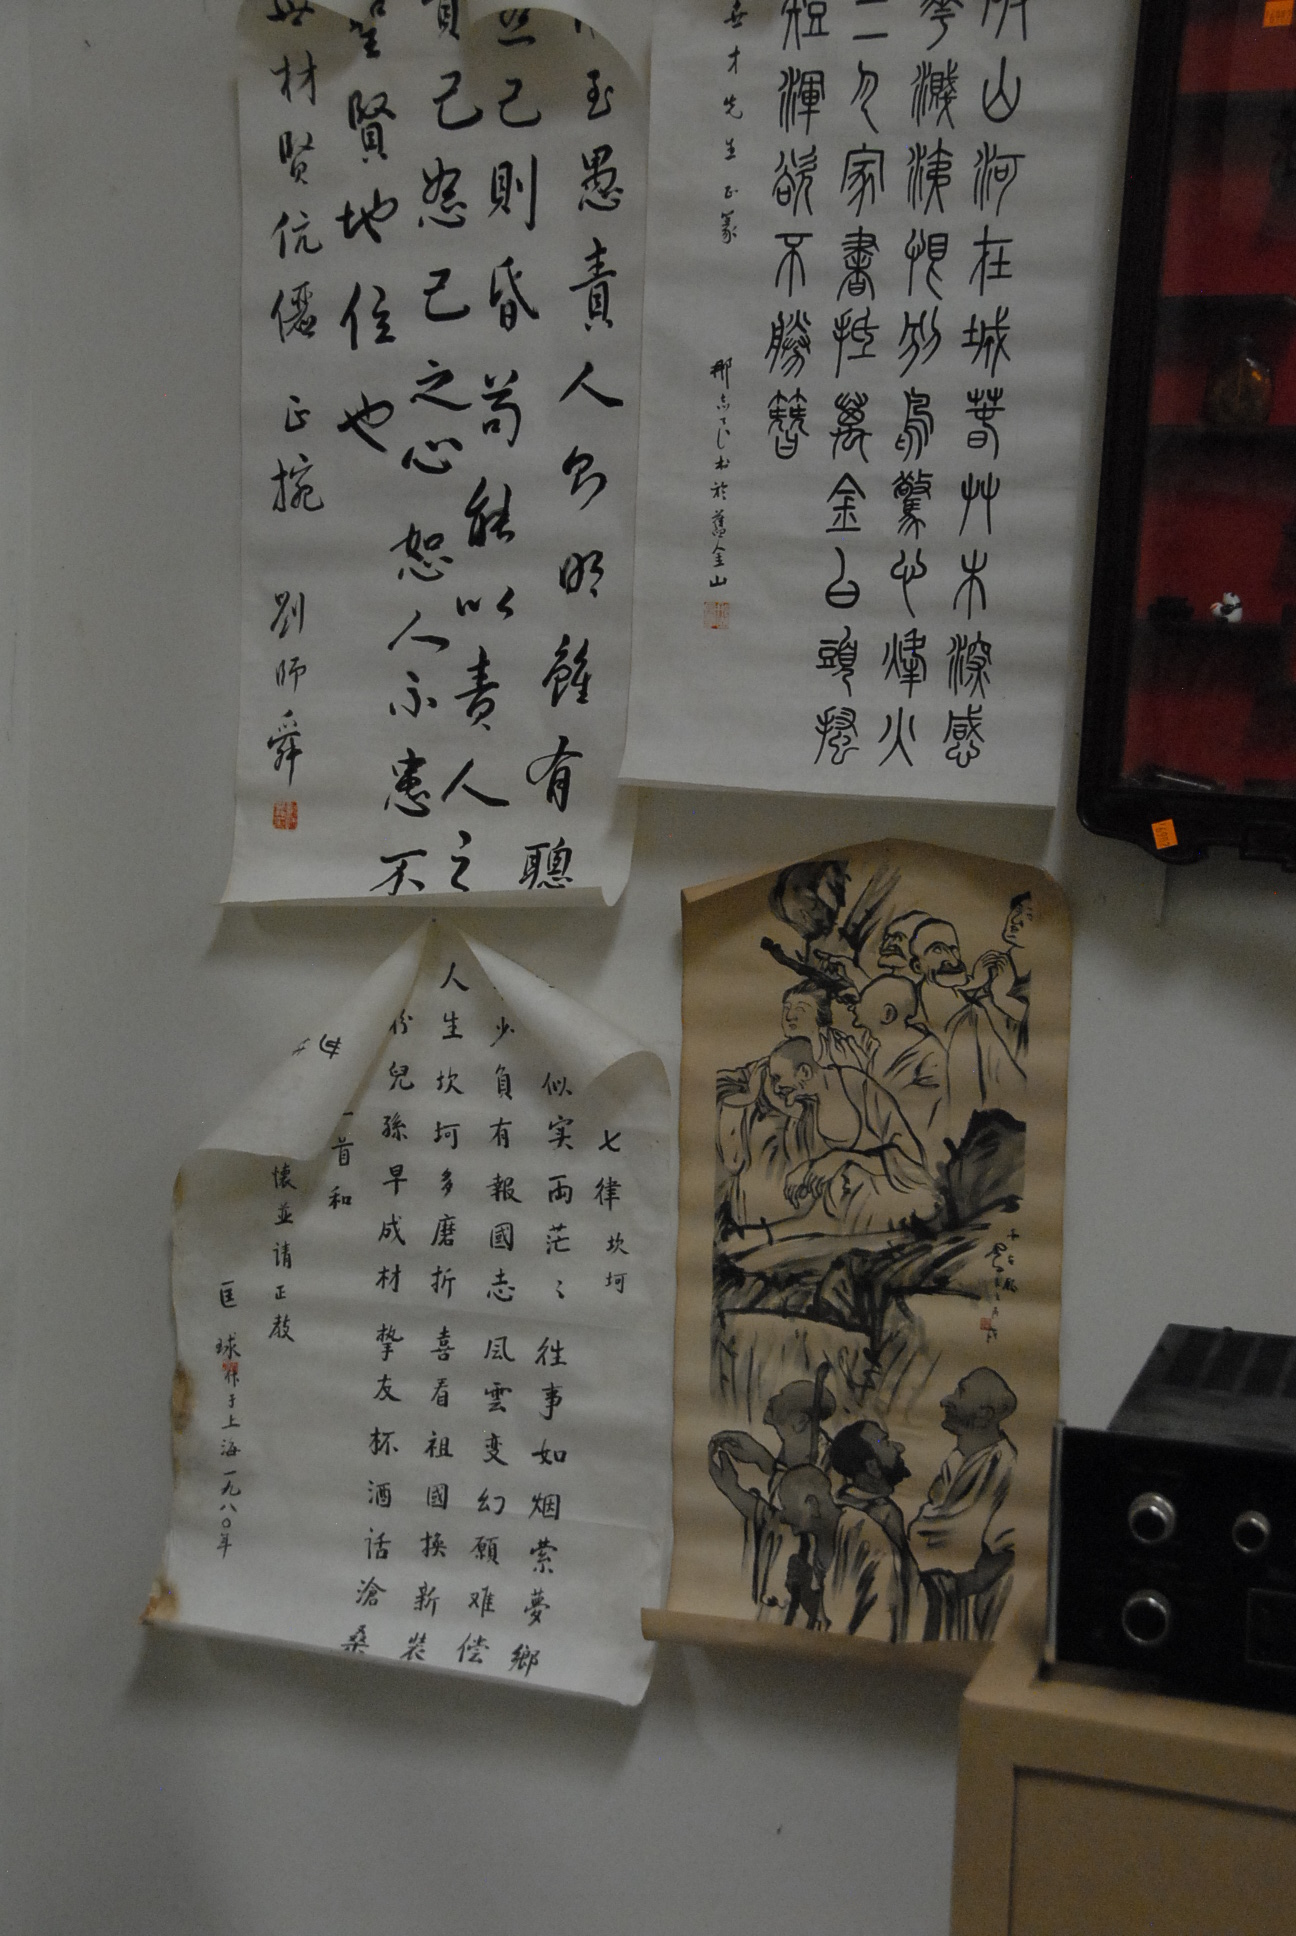 山河在城春艸木深感
花濺淚恨別鳥驚心烽火
三月家書抵萬金白頭搔
短渾欲不勝簪
才先生正篆
那志良書於舊金山
至愚責人則明雖有聰
己則昏苟能以責人之
責己恕己之心恕人不患不
聖賢地位也
材賢伉儷 正捥 劉師舜
七律坎坷
似实兩茫〻往事如烟萦夢鄉
少負有報國志風雲变幻願难偿
人生坎坷多磨折喜看祖國換新裝
兒孫早成材摯友杯酒話滄桑
一首和
懷並請正教
匡球作于上海一九八〇年